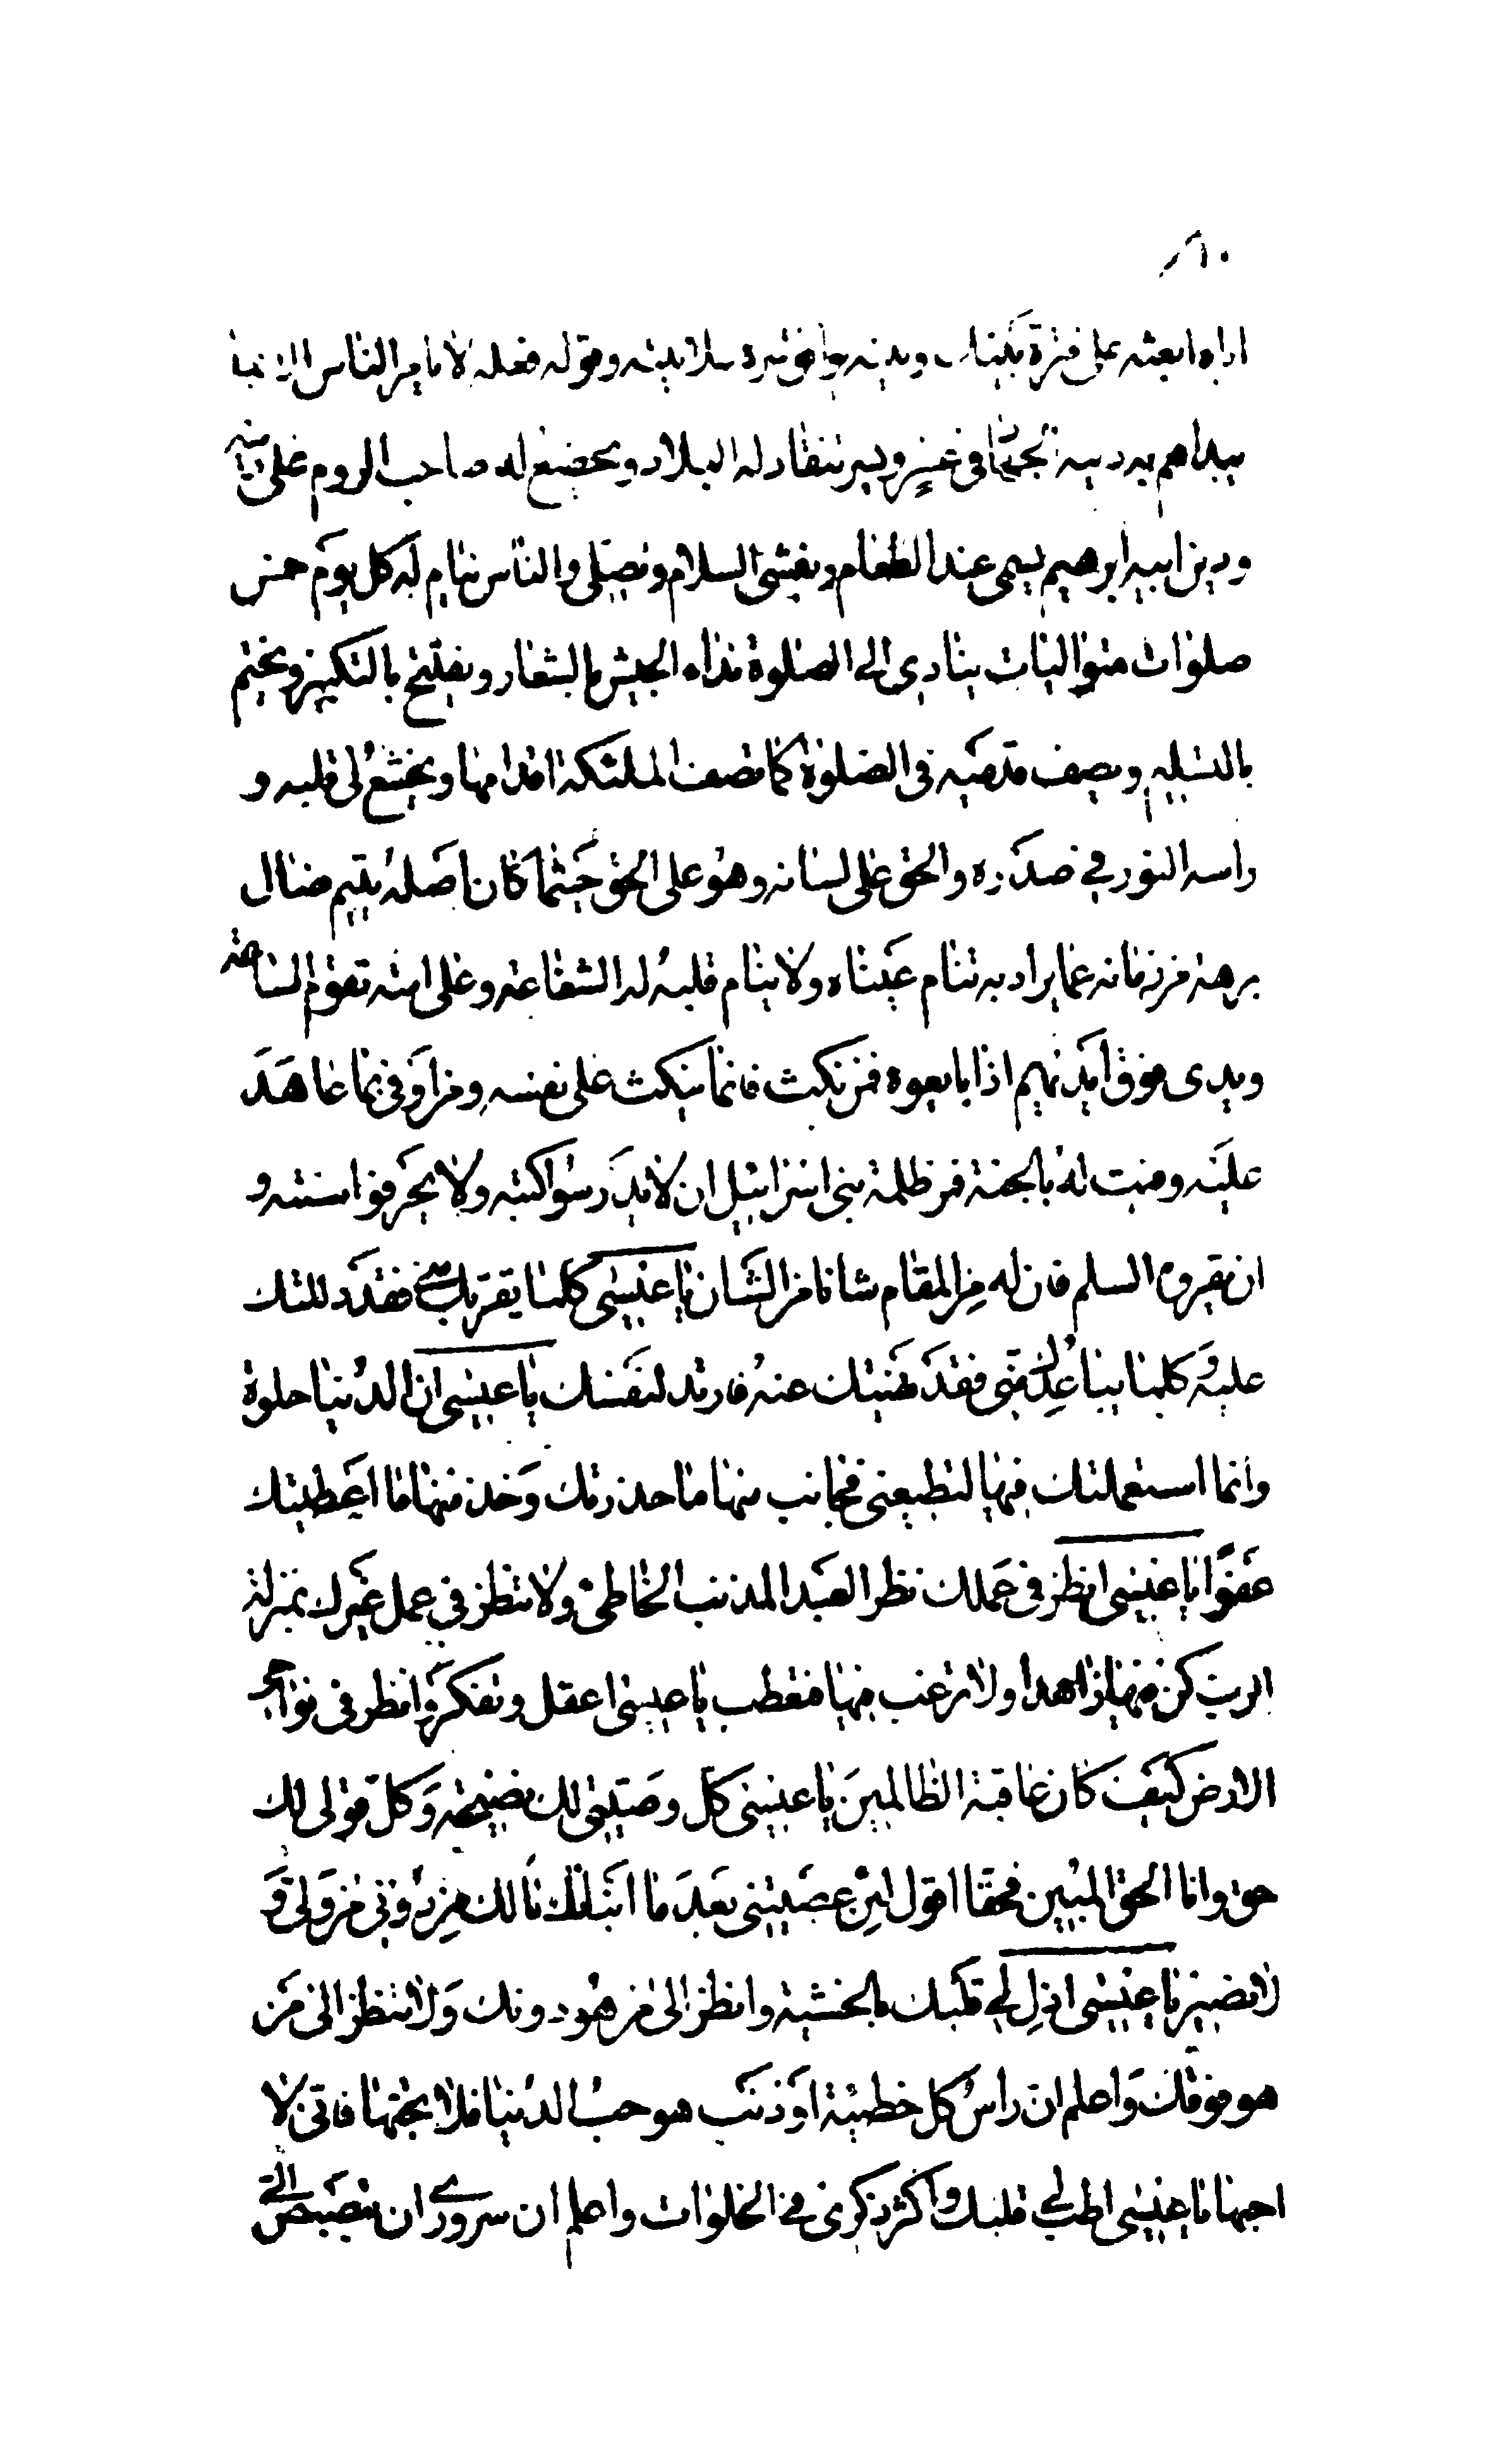 اياه ابعثه على فترة بكتاب ويدينه بها قوته سلانيته وقوله فعله لا يامر الناس الا بما
يبداهم به دينه الجهاد في عسر ويسر تنقاد له البلاد ويخضع له صاحب الروم على دينه
ودين ابيه ابرهيم يسمى عند الطعام ويفشى السلام ويصلى والناس نيام له كل يوم خمس
صلوات متواليات ينادى الى الصلوة نداء الجيش بالشعار ويفتتح بالتكبير ويختتم
بالتسليم ويصف قدميه فى الصلوة كما تصف الملئكة اقدامها ويخشع لى قلبه و
راسه النور في صدره والحق على لسانه وهو على الحق حيثما كان اصله يتيم ضال
برهة من زمانه عما يراد به تنام عيناه ولا ينام قلبه له الشفاعة وعلى امته تقوم الساعة
ويدى فوق ايديهم اذا بايعوه فمن نكث فانما ينكث على نفسه ومن اوفى بما عاهد
عليه وفيت له بالجنة فمر ظلمة بنى اسرائيل ان لا يدرسوا كتبه ولا يحرفوا سنته و
ان يقرؤه السلم فان له من المقام شانا من الشان يا عيسى كلما يقربك منى فقد دللتك
عليه وكلما يباعدك منى فقد نهيتك عنه فارتد لنفسك يا عيسى ان الدنيا حلوة
وانما استعملتك فيها لتطيعنى فجانب منها ما حذرتك وخذ منها ما اعطيتك
عفوا يا عيسى انظر فى عملك نظر العبد المذنب الخاطئ ولا تنظر في عمل غيرك بمنزلة
الرب كن فيها زاهدا ولا ترغب فيها فتعطب يا عيسى اعقل وتفكر وانظر فى نواحى
الارض كيف كان عاقبة الظالمين يا عيسى كل وصيتى لك نصيحة وكل قولى لك
حق وانا الحق المبين فحقا اقول لئن عصيتنى بعد ما انباتك مالك من دونى من ولى و
لا نصير يا عيسى اذل لى قلبك بالخشية وانظر الى من هو دونك ولا تنظر الى من
هو فوقك واعلم ان راس كل خطيئة او ذنب هو حب الدنيا فلا تحبها فانى لا
احبها يا عيسى اطب لى قلبك واكثر ذكرى فى الخلوات واعلم ان سروري ان تبصبص الى